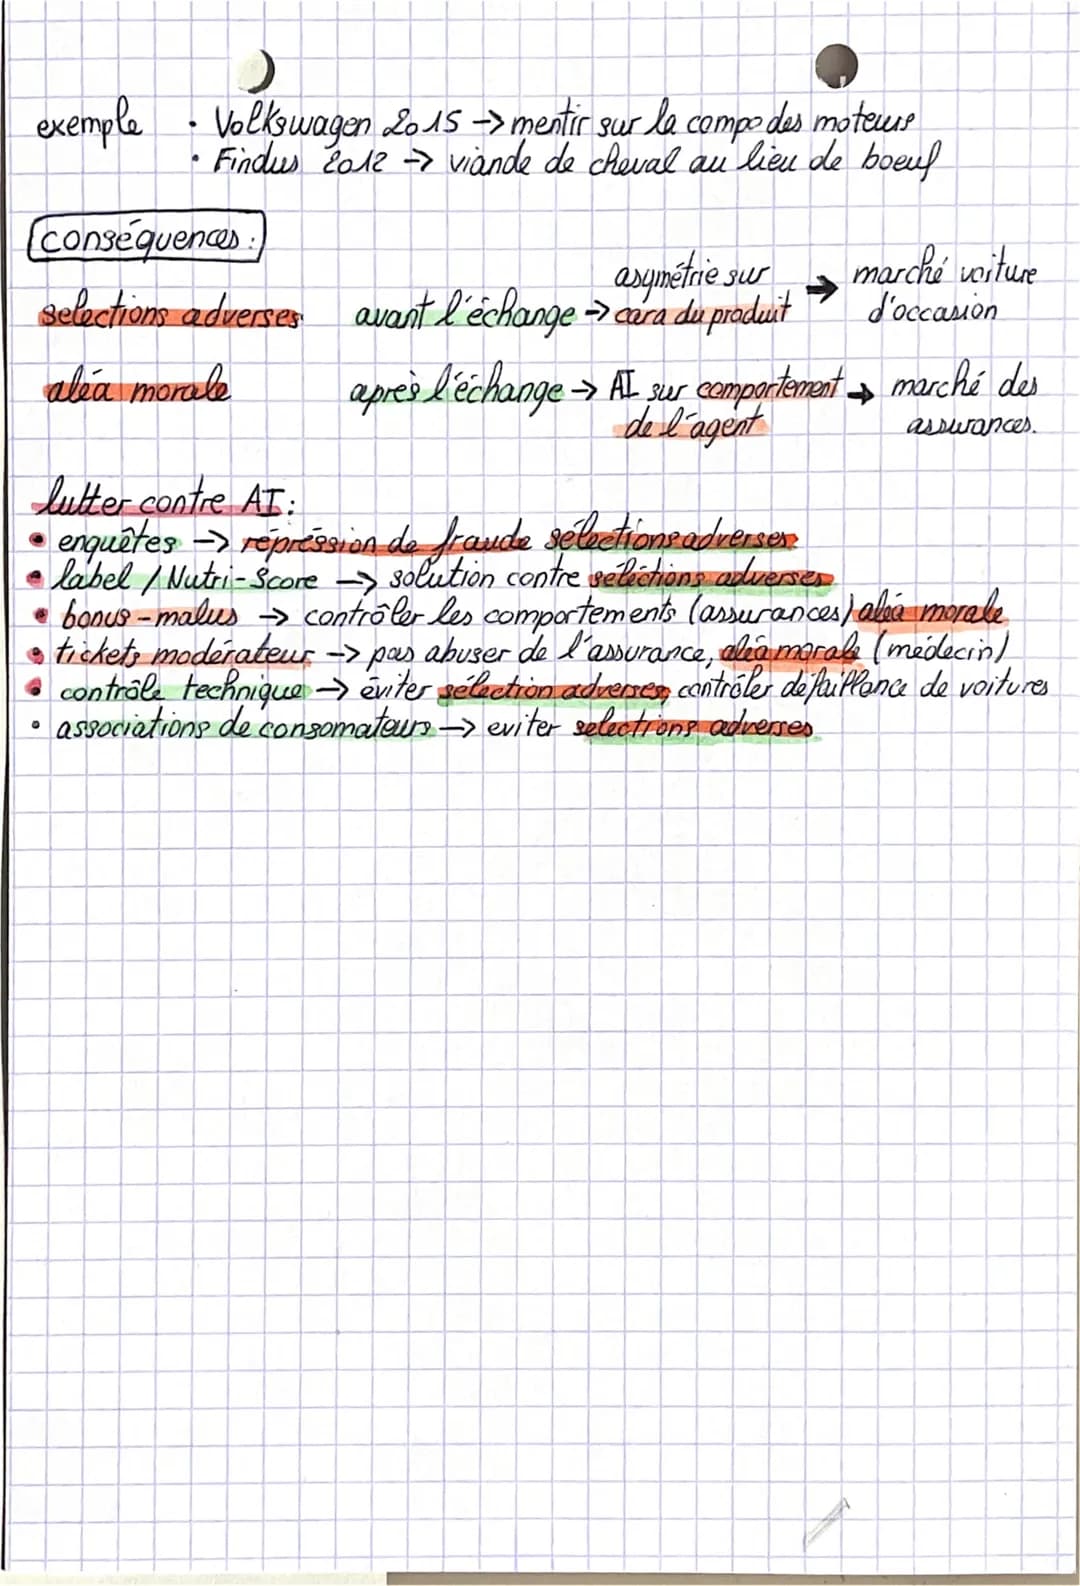 exemple · Volkswagen 2015 → mentir sur la compo des moteurs
· Findus 2012 → viande de cheval au lieu de boeuf
conséquences :
selections adverses avant l'échange → asymétrie sur cara du produit → marché voiture d'occasion
aléa morale après l'échange → AI sur comportement de l'agent → marché des assurances.
lutter contre AI :
• enquêtes → répréssion de fraude sélections adverses
• label / Nutri-Score → solution contre seléctions adverses
• bonus-malus → contrôler les comportements (assurances) aléa morale
• tickets modérateur → pas abuser de l'assurance, aléa morale (médecin)
• contrôle technique → éviter sélection adverses, contrôler défaillance de voitures
• associations de consomateurs → eviter selections adverses